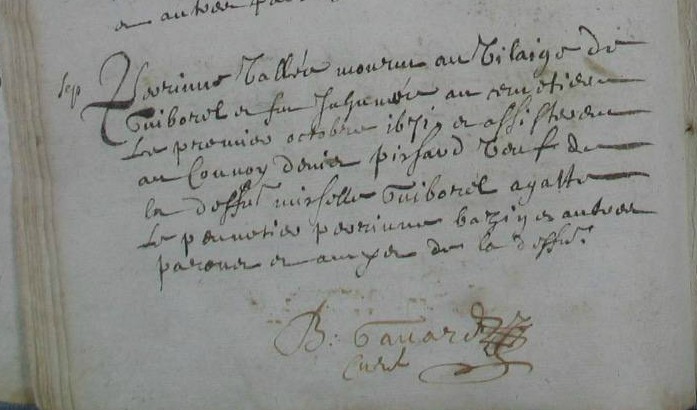 et autres
Sep
Perrinne Vallée mourut au Vilaige de
Guiborel et fut Inhumée au cemetiere
Le premier octobre 1671 et assisterent
au Convoy denis pissard Veuf de
la deffte mischelle Guiborel agatte
Le pennetier perrinne bazin et autres
parens et amys de la deffte
B: Gauard
Curé